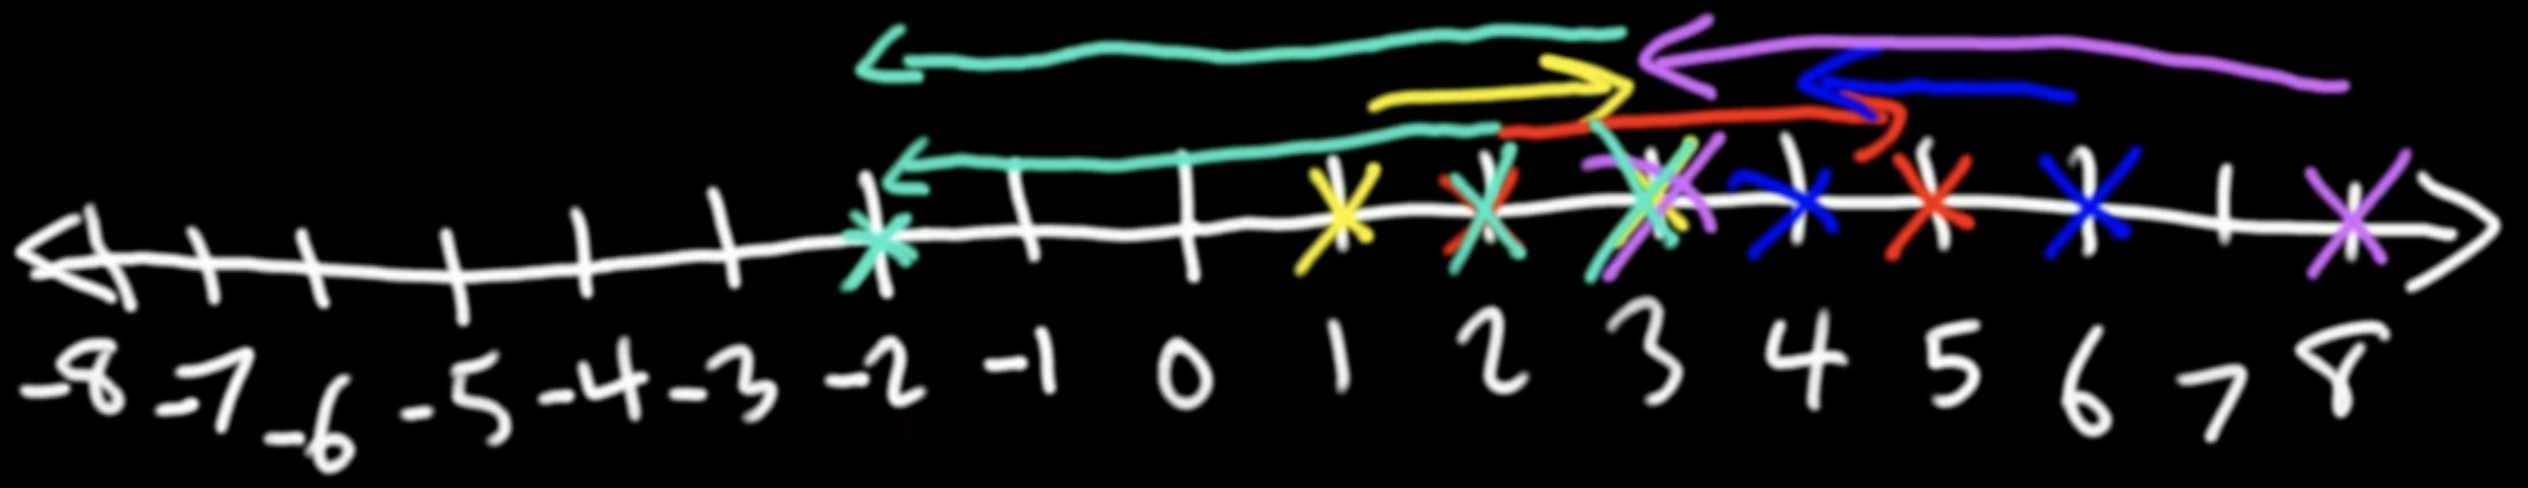 -8 -7 -6 -5 -4 -3 -2 -1 0 1 2 3 4 5 6 7 8